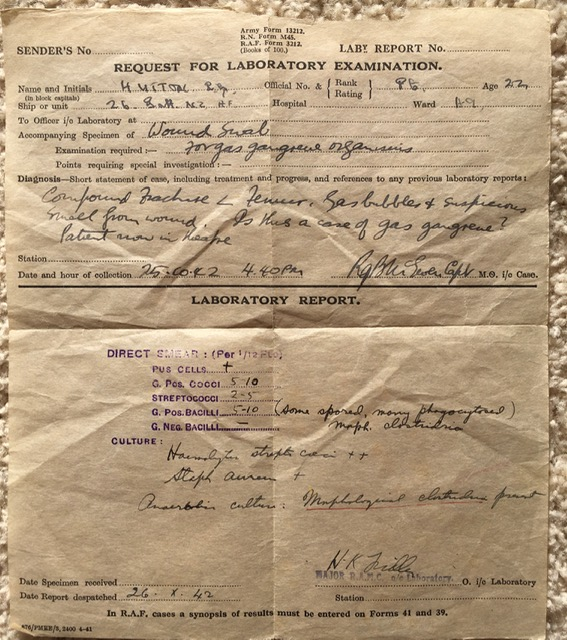 Army Form 13212.
R.N. Form M45.
R.A.F. Form 3212.
(Books of 100.)
SENDER'S No. LABY. REPORT No.
REQUEST FOR LABORATORY EXAMINATION.
Name and Initials Official No. & { Rank Rating } Pte. Age 22
(in block capitals)
Ship or unit 26 Batt. N.Z. Hospital Ward
To Officer i/c Laboratory at
Accompanying Specimen of Wound Swab
Examination required :— For gas gangrene organisms
Points requiring special investigation :—
Diagnosis—Short statement of case, including treatment and progress, and references to any previous laboratory reports:
Compound Fracture L Femur. Gas bubbles & suspicious
smell from wound Is this a case of gas gangrene?
Patient now in theatre
Station
Date and hour of collection 25-10-42 4.40PM Capt M.O. i/c Case.
LABORATORY REPORT.
DIRECT SMEAR : (Per 1/12 Fld)
PUS CELLS +
G. Pos. COCCI 5-10
STREPTOCOCCI 2-5
G. POS. BACILLI 5-10 (some spored, many phagocytosed)
G. NEG. BACILLI — Morph. clostridia
CULTURE :
Haemolytic streptococci ++
Staph aureus +
Anaerobic culture: Morphological clostridia present
H.K.
MAJOR R.A.M.C. o/c Laboratory. O. i/c Laboratory
Date Specimen received
Date Report despatched 26. X. 42 Station
In R.A.F. cases a synopsis of results must be entered on Forms 41 and 39.